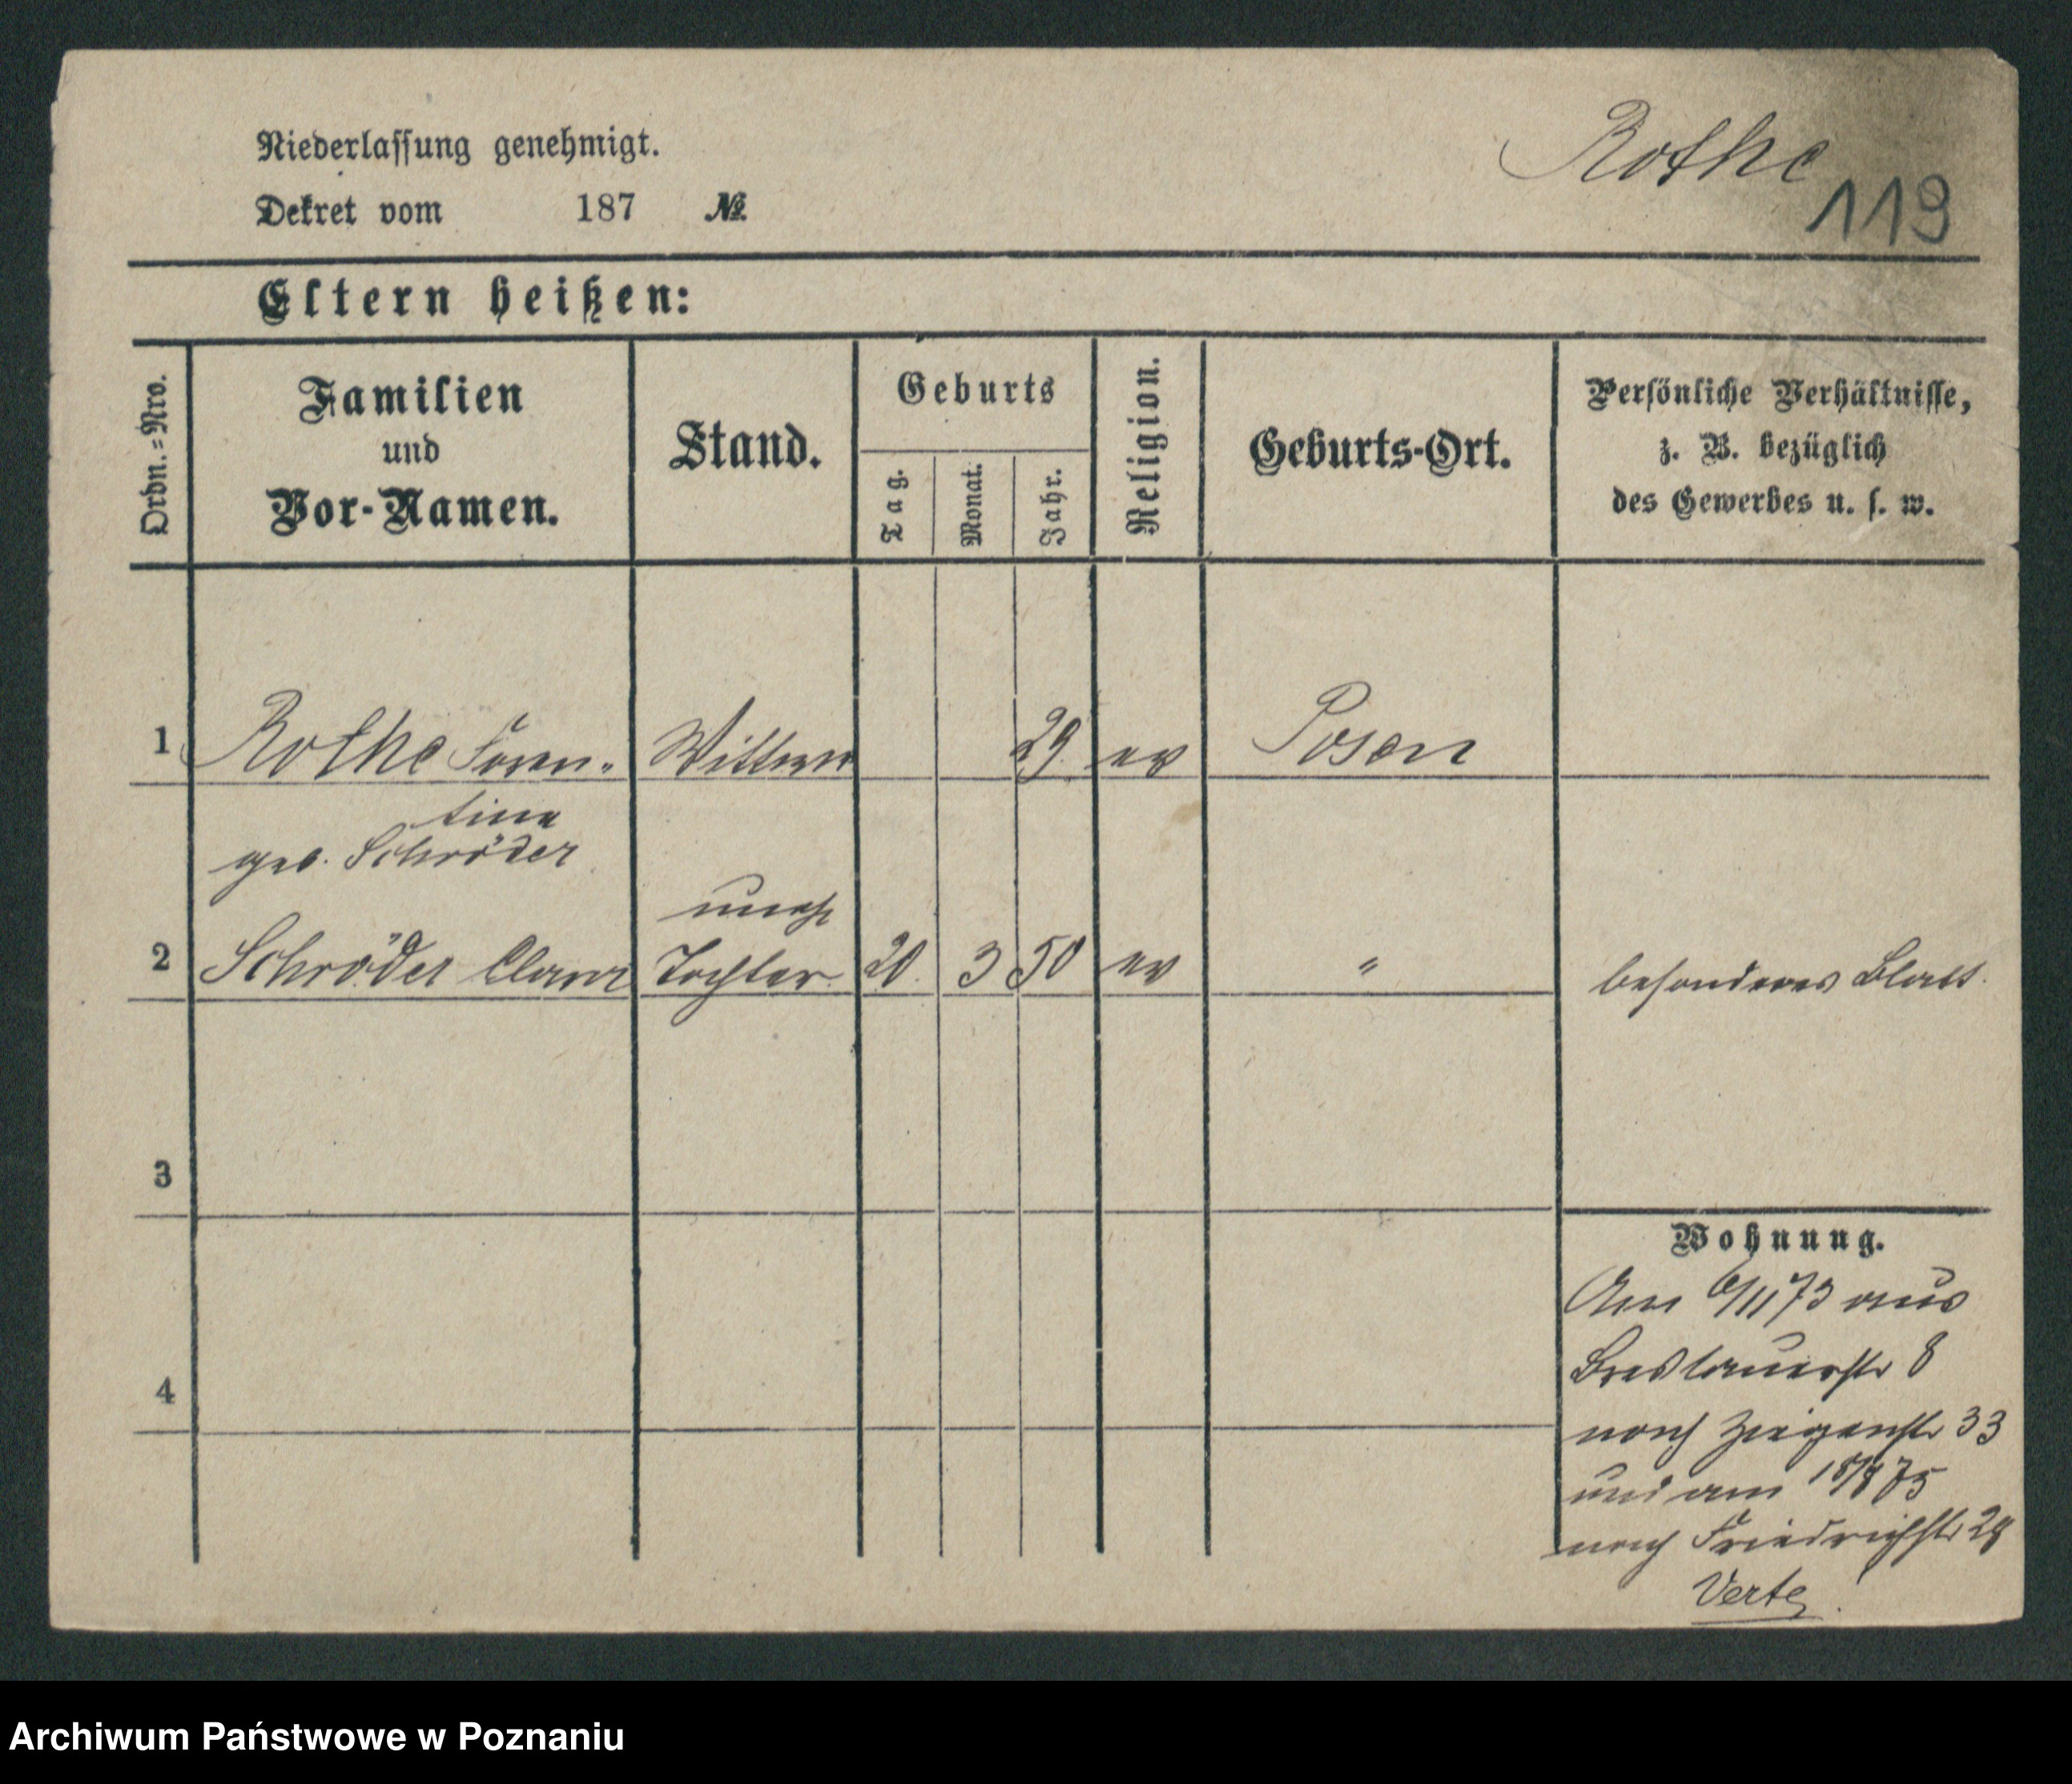 Niederlassung genehmigt.
Rothe
119
Dekret vom 187 №
Eltern heißen:
Ordn.-Nro.
Familien
und
Vor-Namen.
Stand.
Geburts
Tag.
Monat.
Jahr.
Religion.
Geburts-Ort.
Persönliche Verhältnisse,
z. B. bezüglich
des Gewerbes u. s. w.
1 Rothe Wittwe 29 ev Posen
tine
geb. Schröder
2 Schröder Clara Tochter 20. 3 50 ev " besonderes Blatt.
3
4
Wohnung.
Am 6/11 73 aus
Breslauerstr 8
nach Ziegenstr 33
und am 75
nach Friedrichstr
Verte!
Archiwum Państwowe w Poznaniu